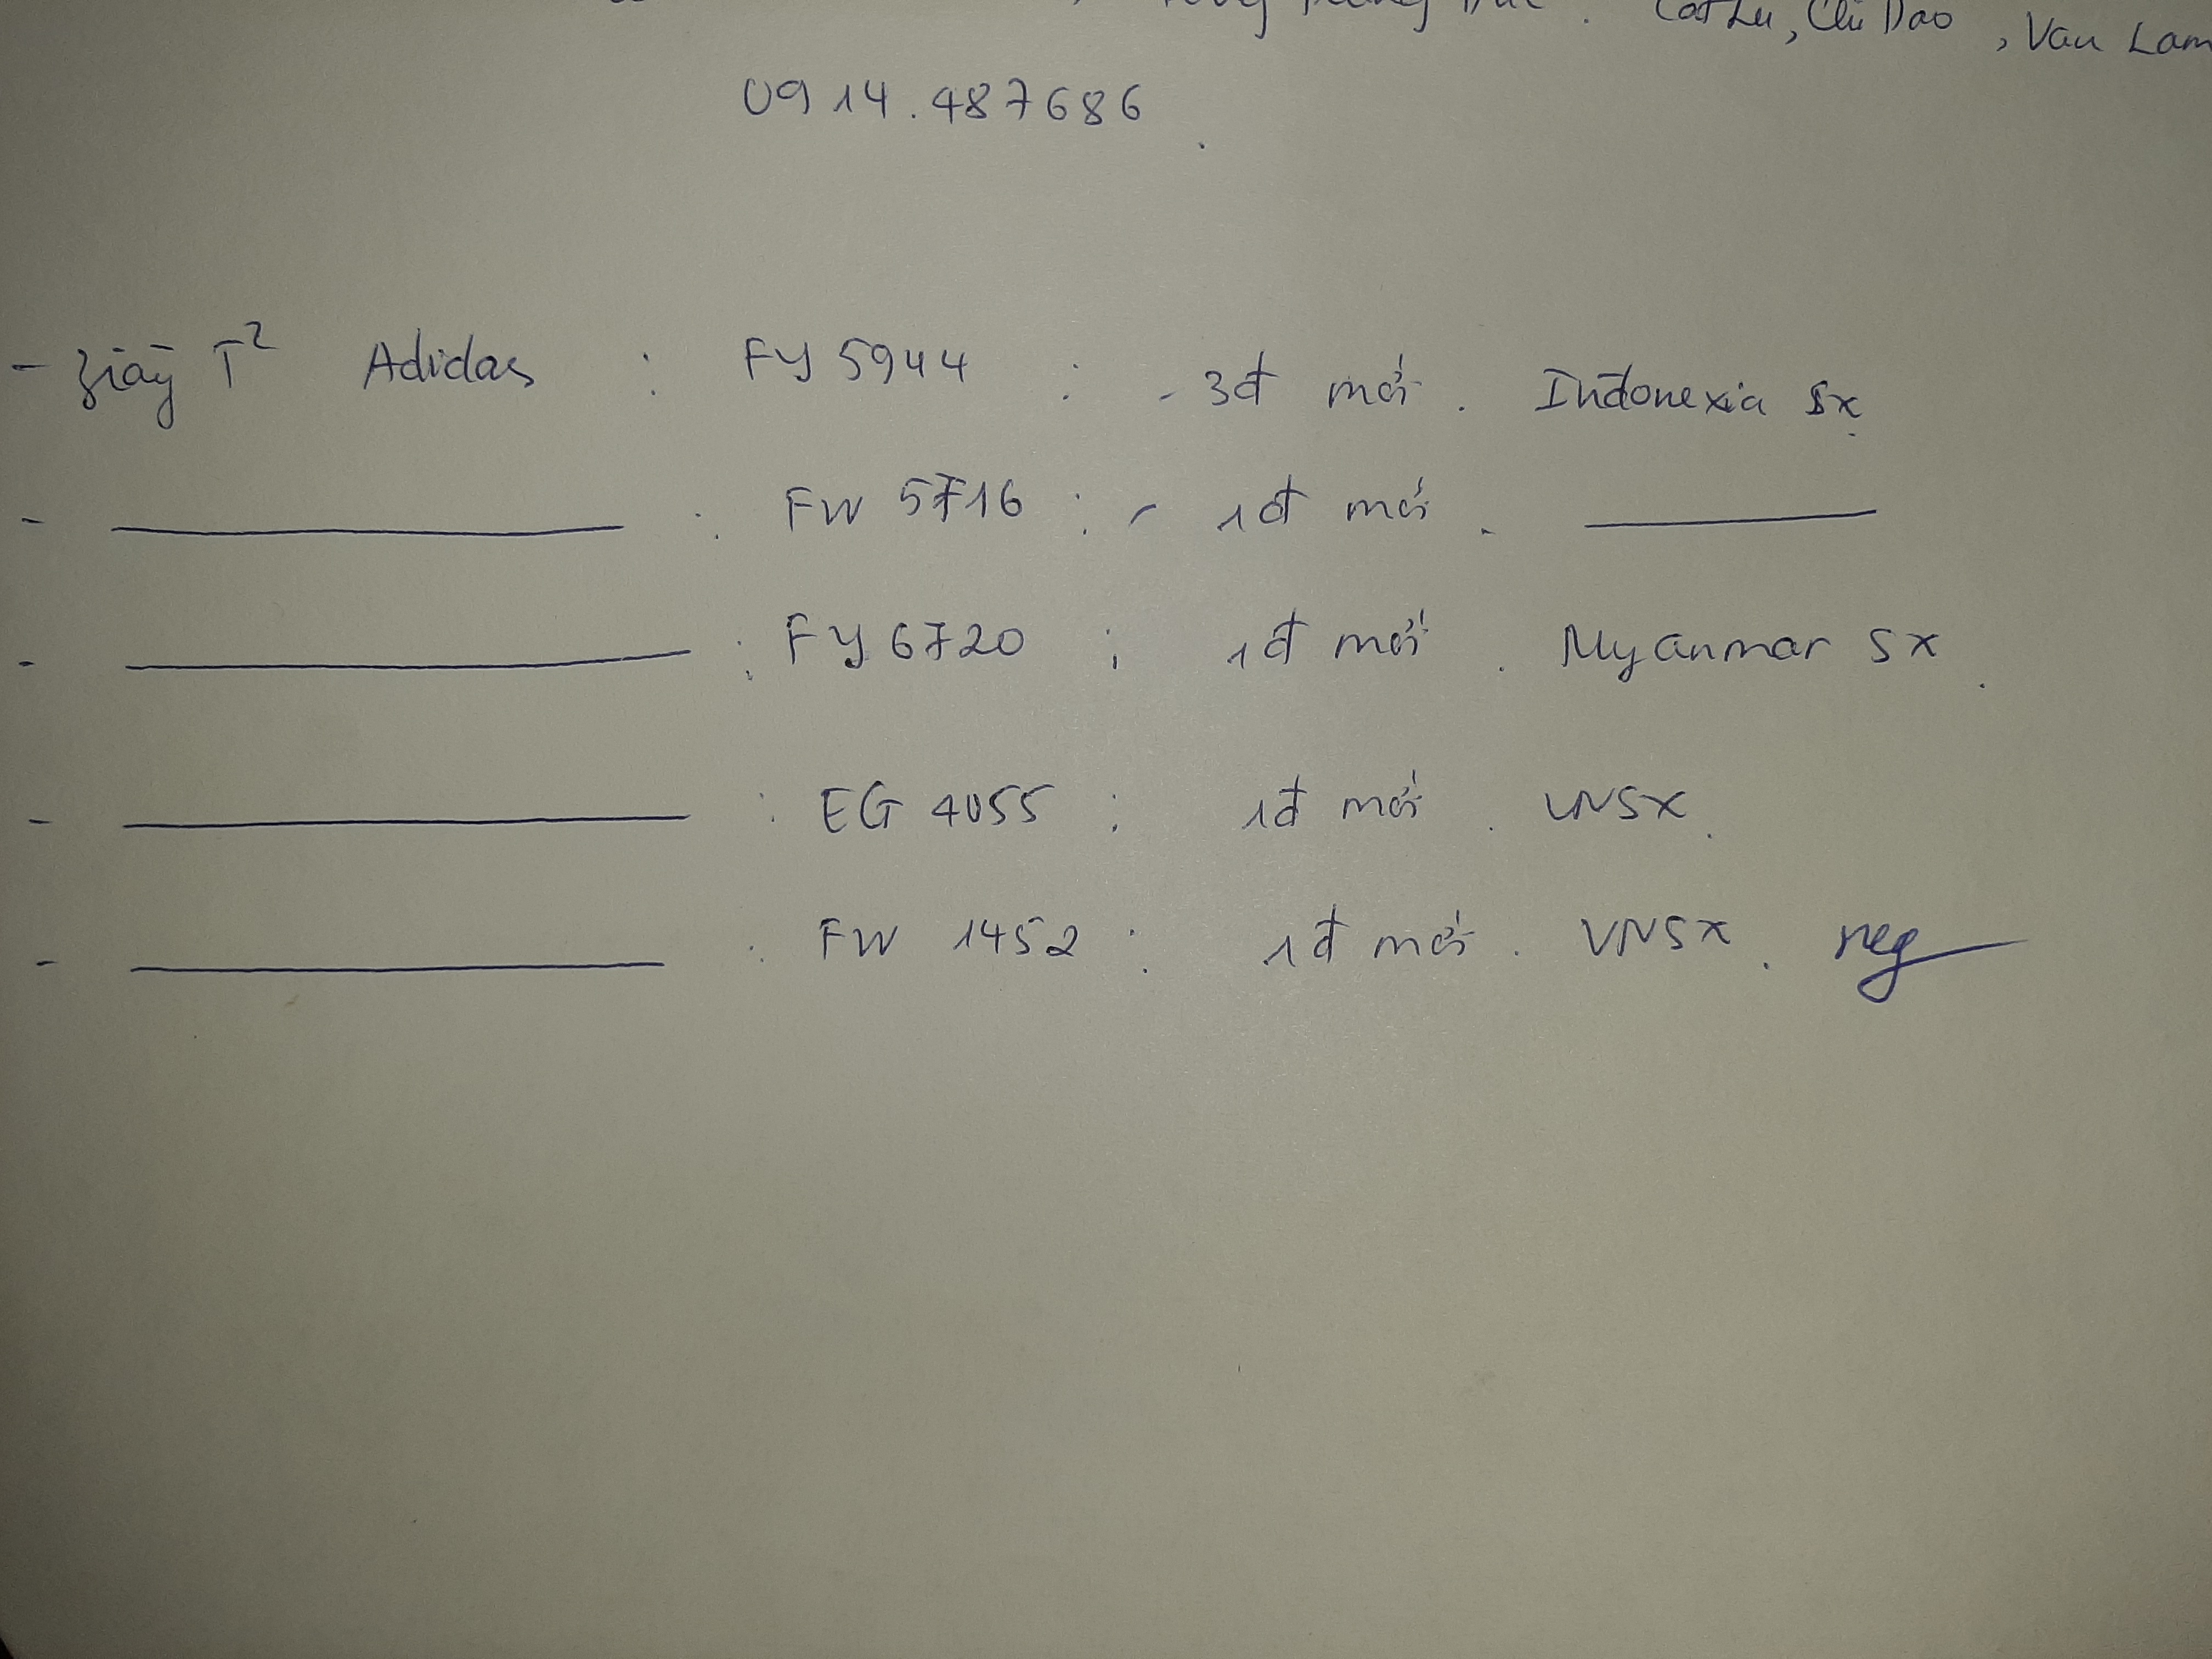 Cát Lu, Chỉ Dao, Van Lam
0914.487686.
- giầy T² Adidas : FY 5944 : - 3đ mới. Indonexia sx.
- ______ : FW 5716 : - 1đ mới. ______
- ______ : FY 6720 : 1đ mới. Myanmar sx.
- ______ : EG 4055 : 1đ mới. VNSX.
- ______ : FW 1452 : 1đ mới. VNSX.